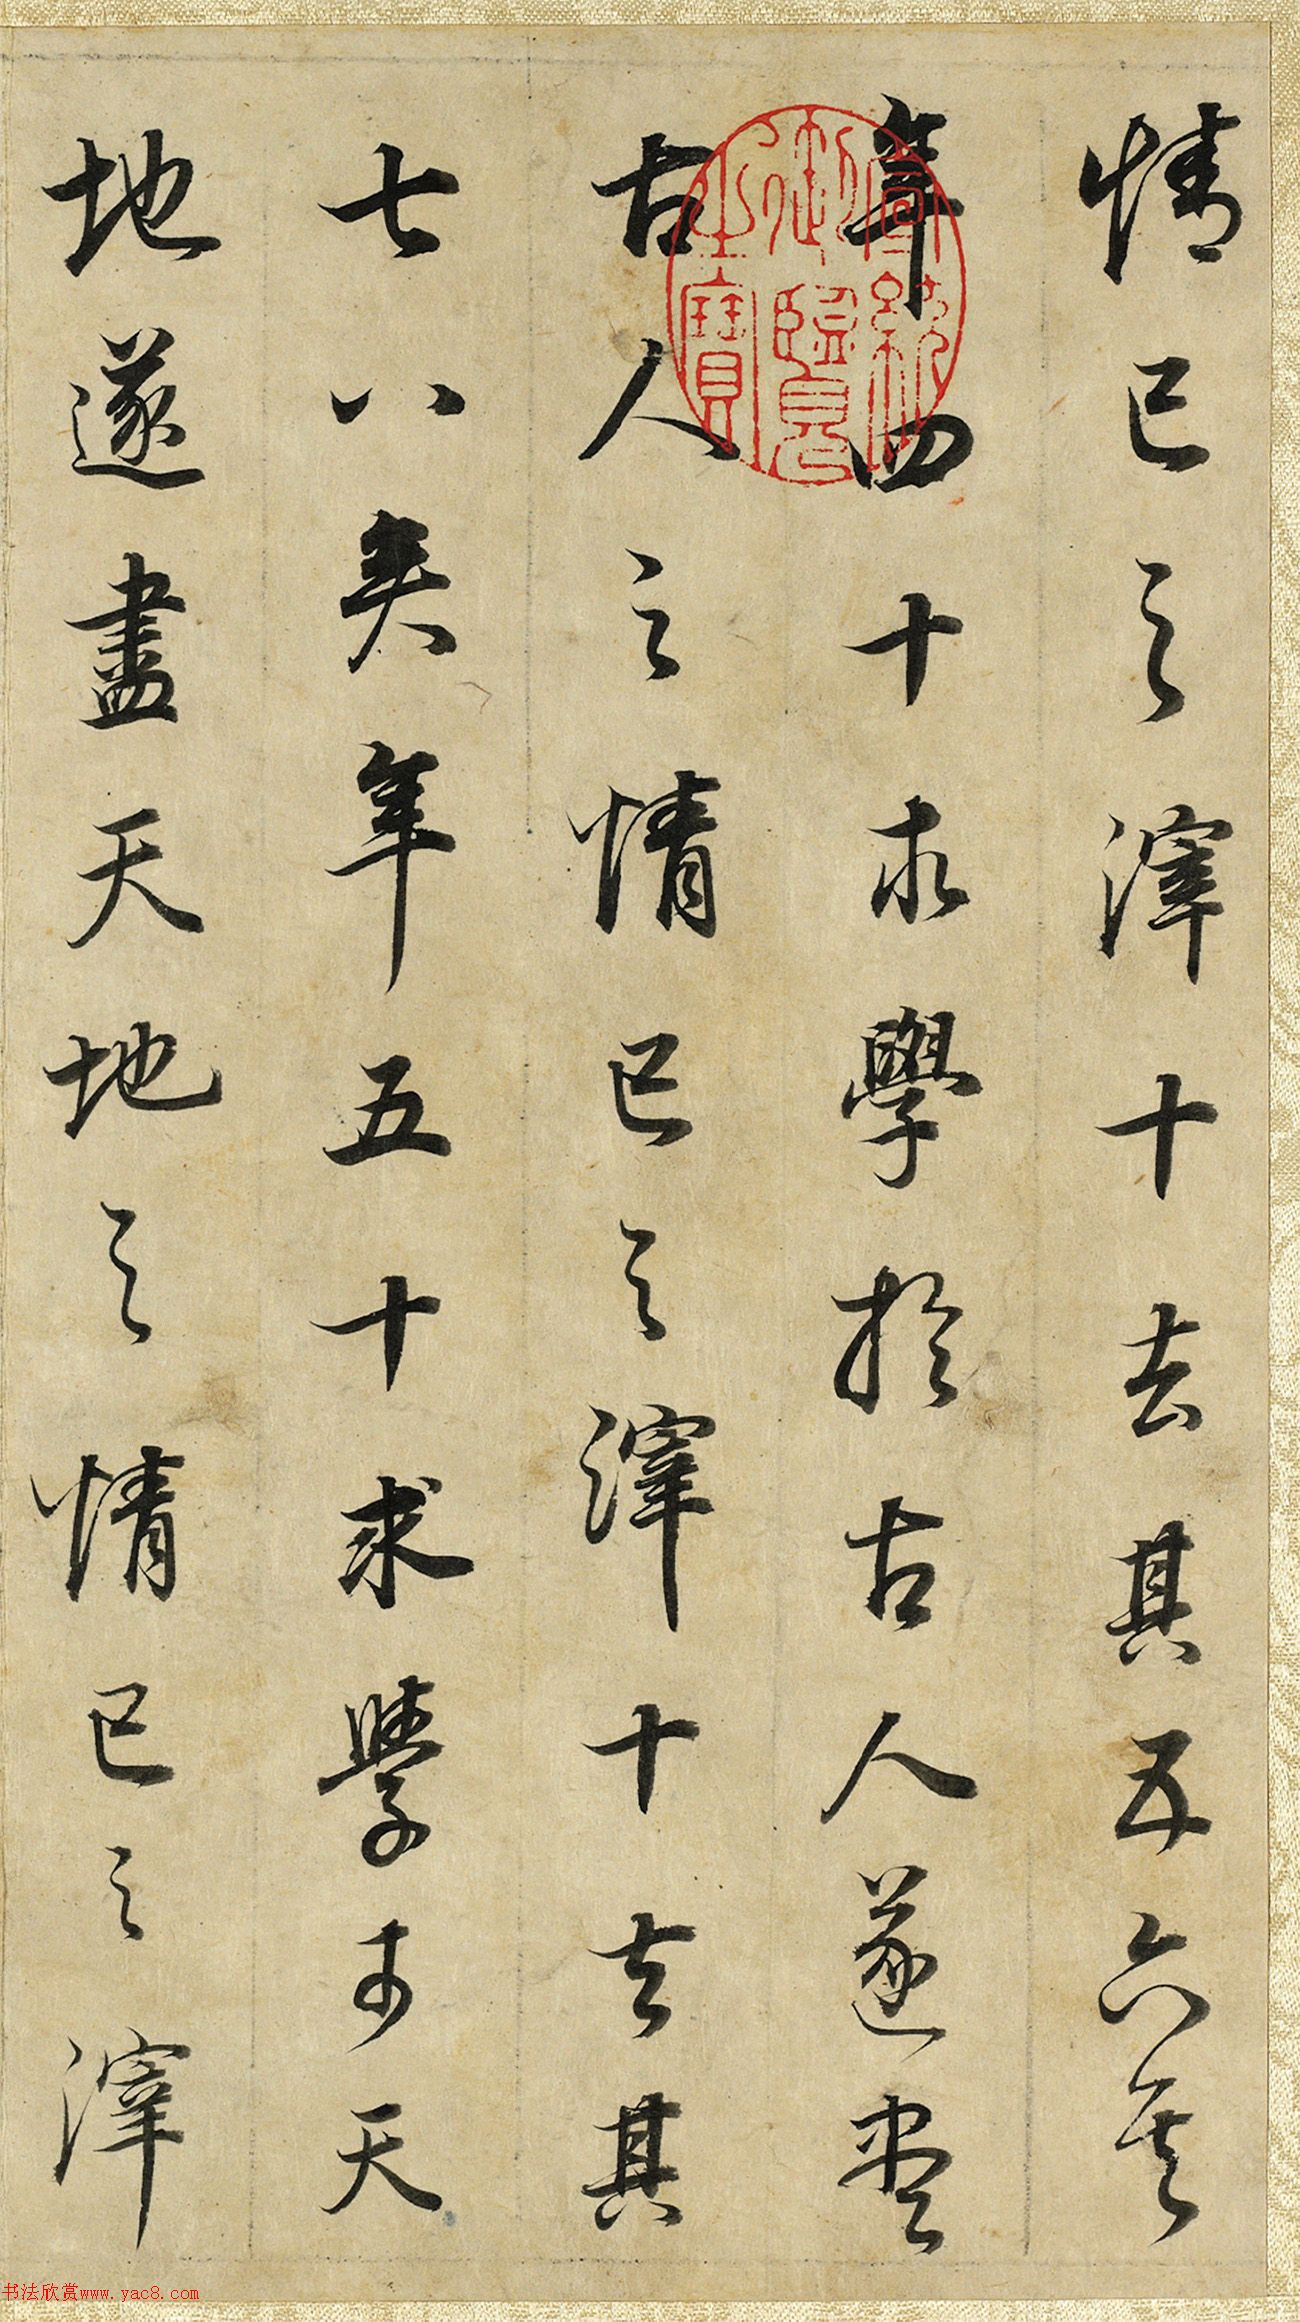 情已之滓十去其五六矣
年四十求學於古人遂盡
古人之情已之滓十去其
七八矣年五十求學於天
地遂盡天地之情已之滓
宣統御覽之寶
书法欣赏www.yac8.com